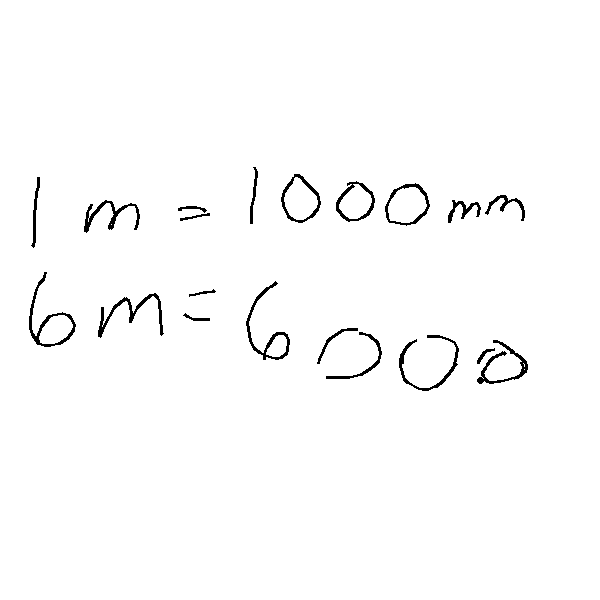 1 m = 1000 mm
6 m = 6000